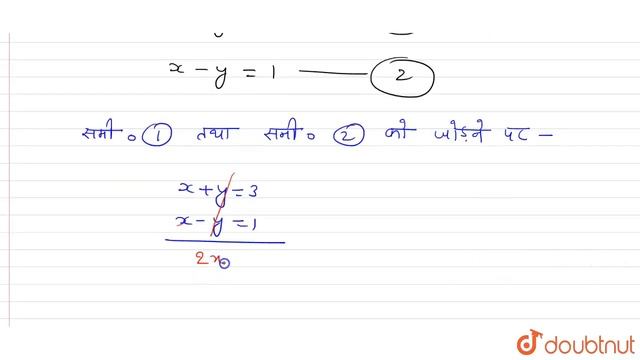 x - y = 1 — 2
समी० 1 तथा समी० 2 को जोड़ने पर -
x + y = 3
x - y = 1
2x
doubtnut